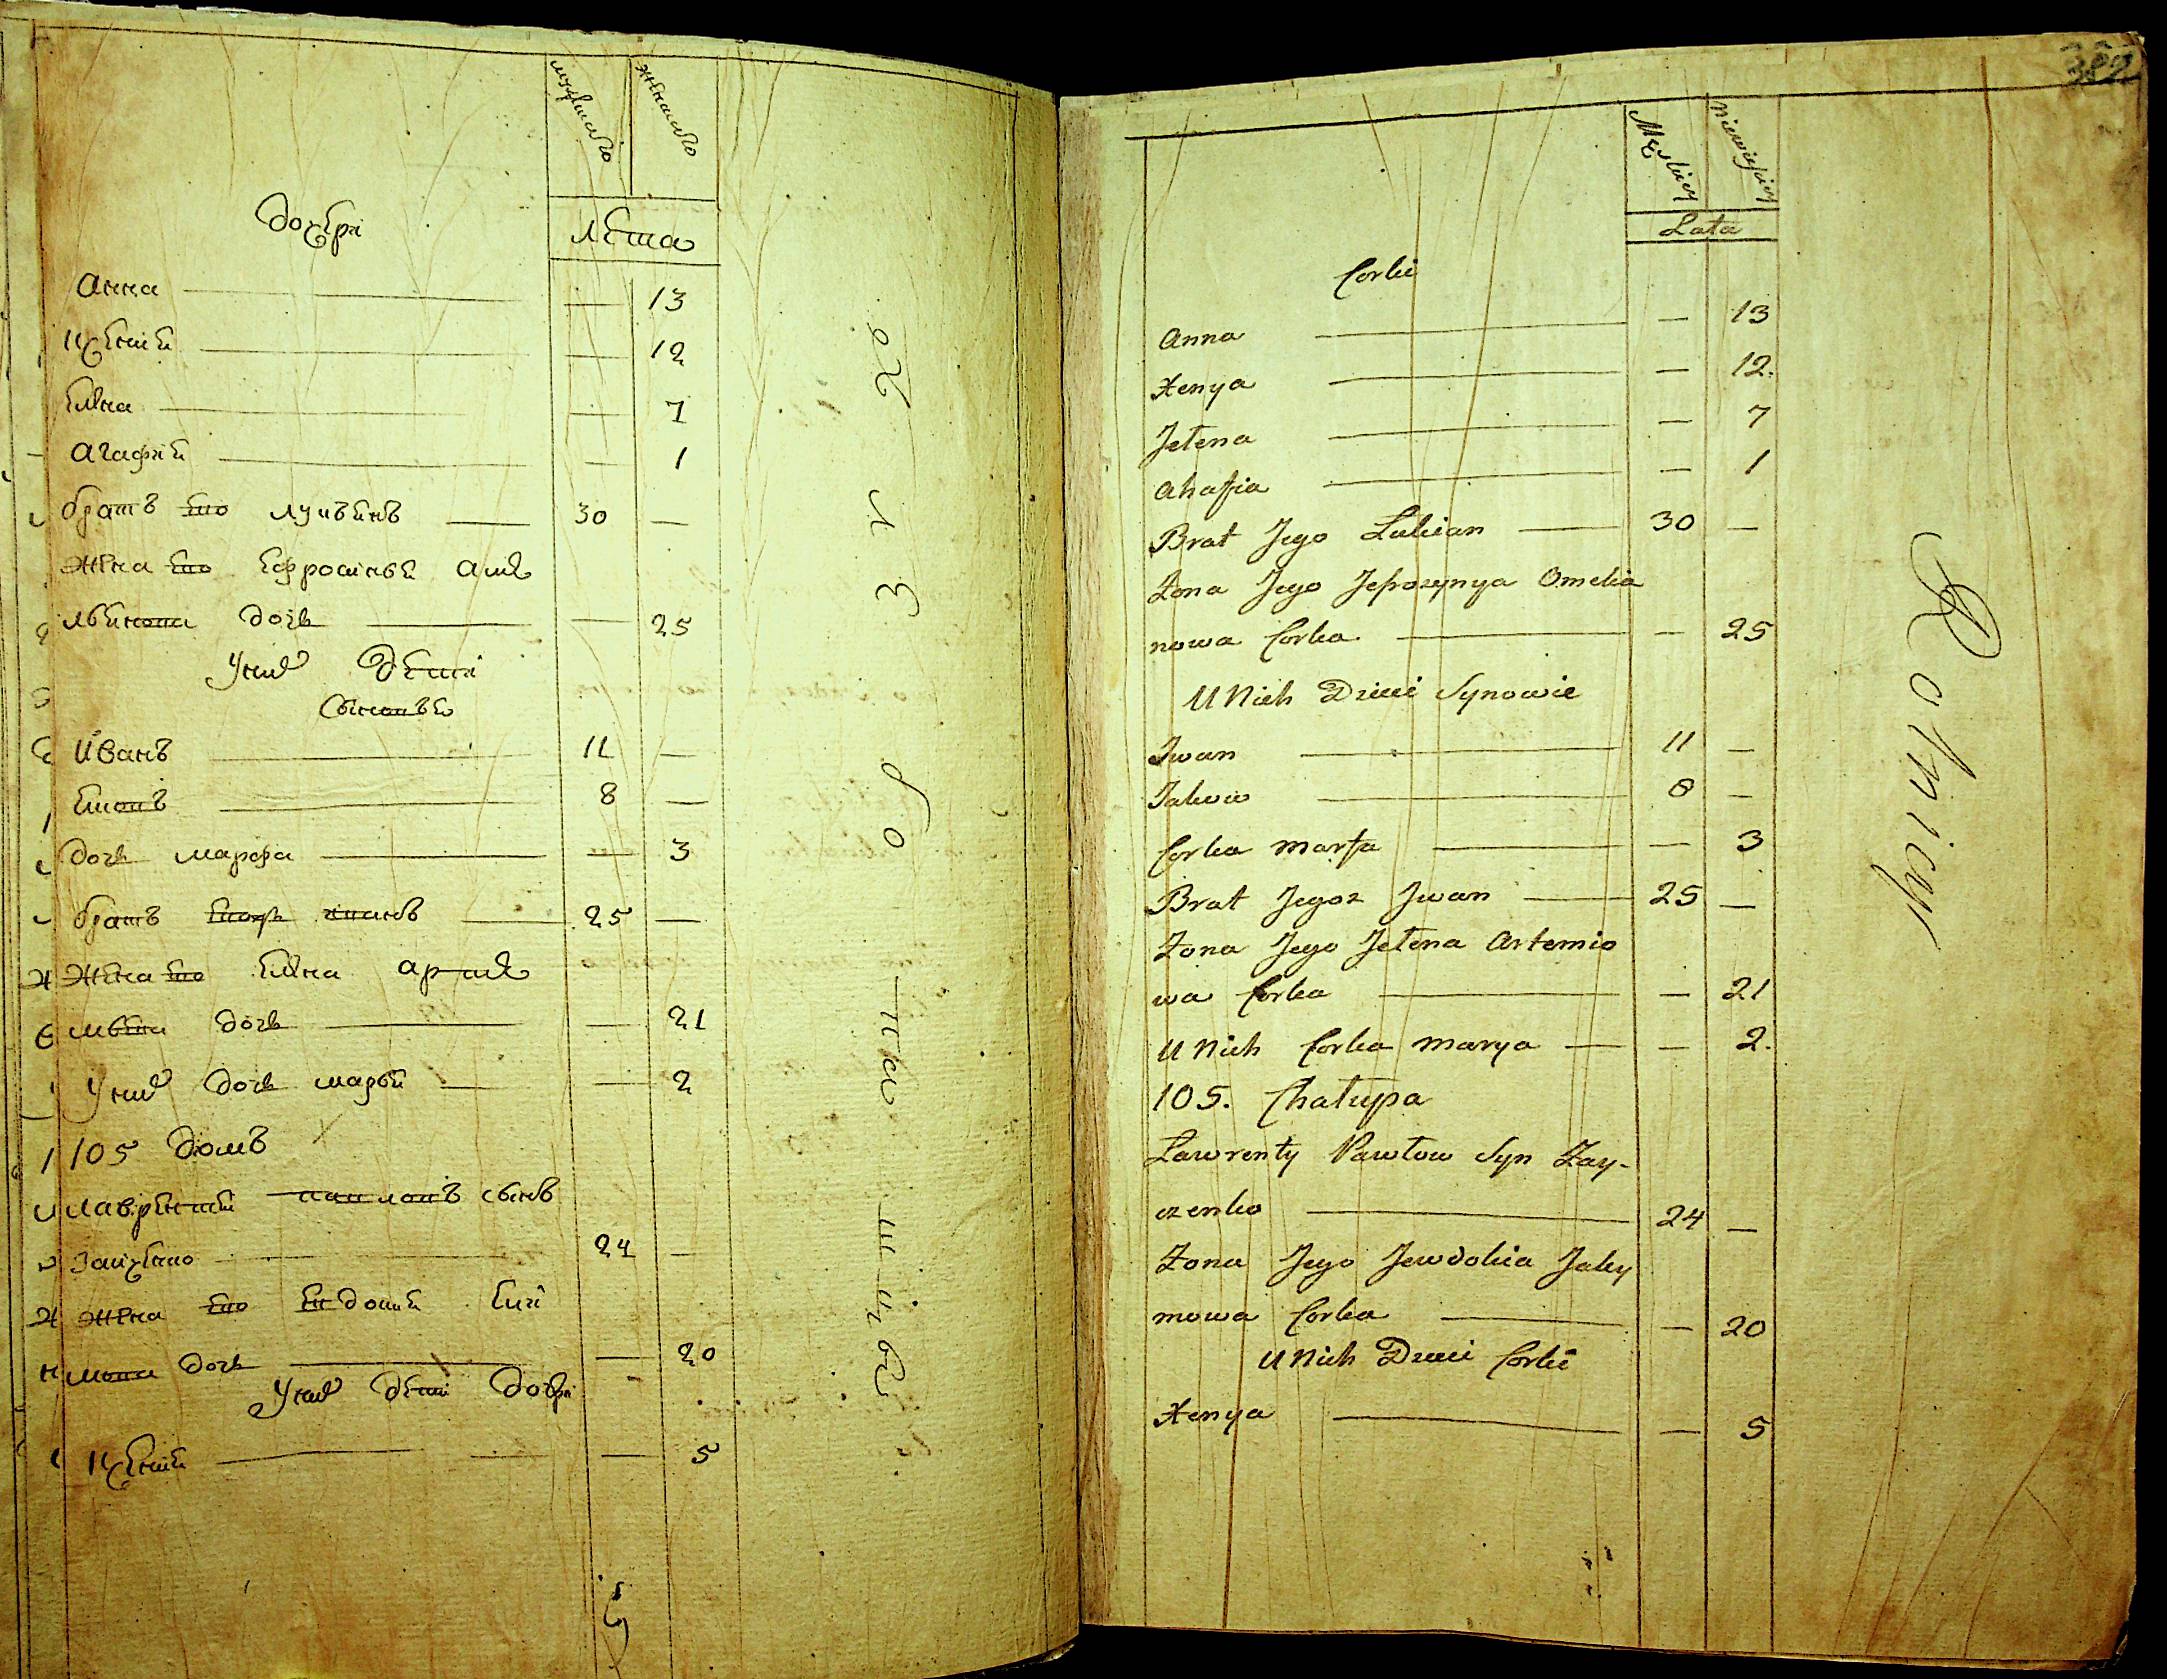 мужеска женска
дочери лета
анна — — 13
ксения — — 12
елена — — 7
агафия — — 1
братъ его лукьянъ — 30 —
жена его ефросинья амелья
льянова дочь — — 25
у них дети
сыновья
иванъ — 11 —
яковъ — 8 —
дочь марфа — — 3
братъ его иванъ — 25 —
жена его елена арте
мьева дочь — — 21
у них дочь марья — — 2
105 домъ
лаврентий павловъ сынъ
зайченко — 24 —
жена его евдокия еки
мова дочь — — 20
у них дети дочери
ксения — — 5
Męskiey Niewieskiey
Lata
Corki
Anna — — 13
Xenya — — 12.
Jełena — — 7
Ahafia — — 1
Brat Jego Lukian — 30 —
Żona Jego Jefrozynya Omelia
nowa Corka — — 25
U Nich Dzieci Synowie
Jwan — 11 —
Jakow — 8 —
Corka Marfa — — 3
Brat Jegoz Jwan — 25 —
Żona Jego Jełena Artemio
wa Corka — — 21
U Nich Corka Marya — — 2.
105. Chałupa
Ławrenty Pawłow Syn Zay-
czenko — 24 —
Żona Jego Jewdokia Jaky
mowa Corka — — 20
U Nich Dzieci Corki
Xenya — — 5
Rotnicy